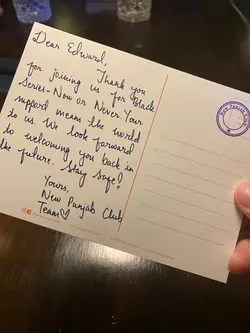 Dear Edward,
Thank you
for joining us for Black
Series-Now or Never. Your
support means the world
to us. We look forward
to welcoming you back in
the future. Stay Safe!
Yours,
New Punjab Club
Team♡